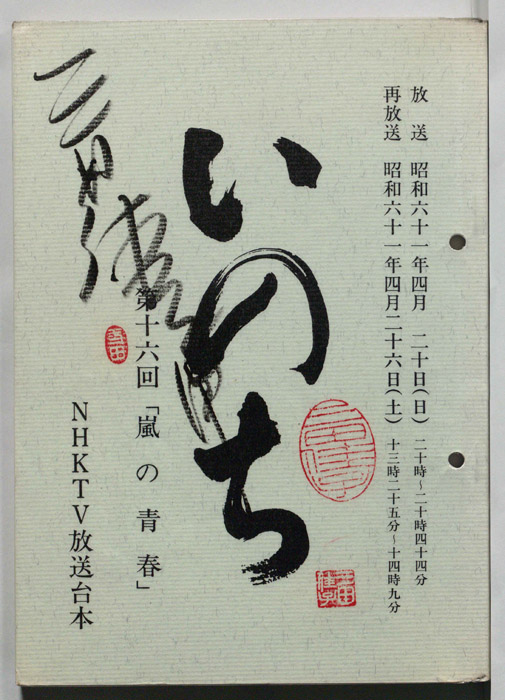 放送 昭和六十一年四月 二十日(日) 二十時~二十時四十四分
再放送 昭和六十一年四月二十六日(土) 十三時二十五分~十四時九分
いのち
第十六回「嵐の青春」
NHKTV放送台本